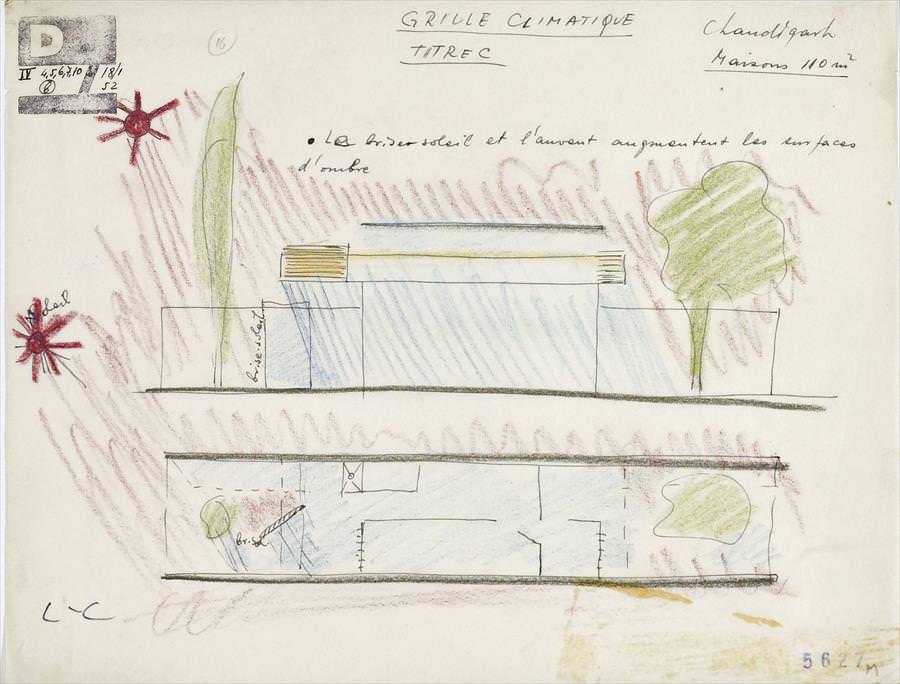 D
IV 4,5,6,7,10 18/1
52
16
GRILLE CLIMATIQUE
TITREC
Chandigarh
Maisons 110 m²
• Le brise-soleil et l'auvent augmentent les surfaces
d'ombre
Soleil
brise-soleil
brise
L-C
5627
M